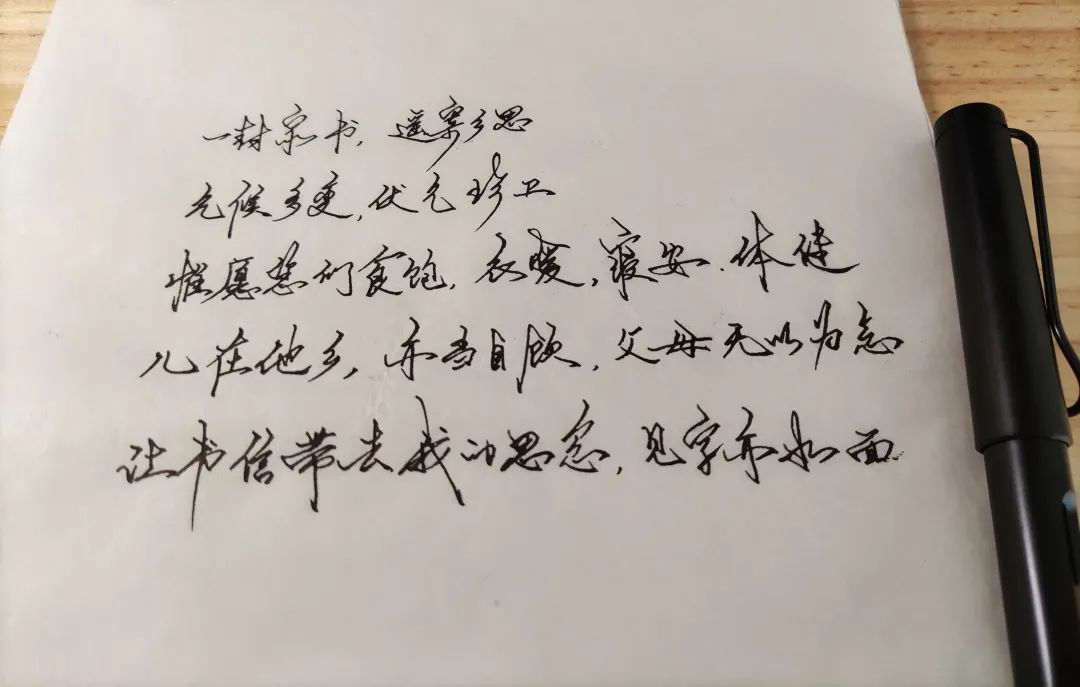 一封家书，遥寄乡思
气候多变，伏气珍卫
惟愿您们食饱，衣暖，寝安，体健
儿在他乡，亦当自顾，父母无以为念
让书信带去我的思念，见字亦如面